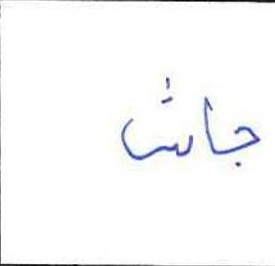 جاش